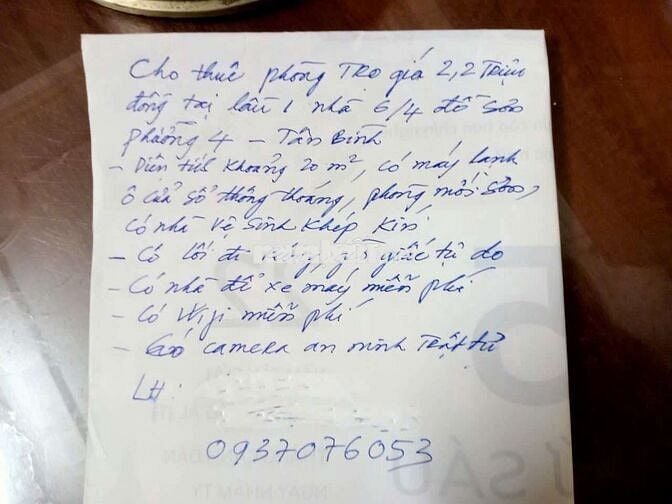 Cho thuê phòng TRọ giá 2,2 Triệu
đồng tại lầu 1 nhà 6/4 đồ Sơn
phường 4 - Tân Bình
- Diện tích khoảng 20 m², có máy lạnh
ô cửa sổ thông thoáng, phòng mới Sơn,
có nhà vệ sinh khép kín
- Có lối đi riêng, giờ giấc tự do
- Có nhà để xe máy miễn phí
- Có Wifi miễn phí
- Có camera an ninh Trật tự
LH:
0937076053
5
SÁU